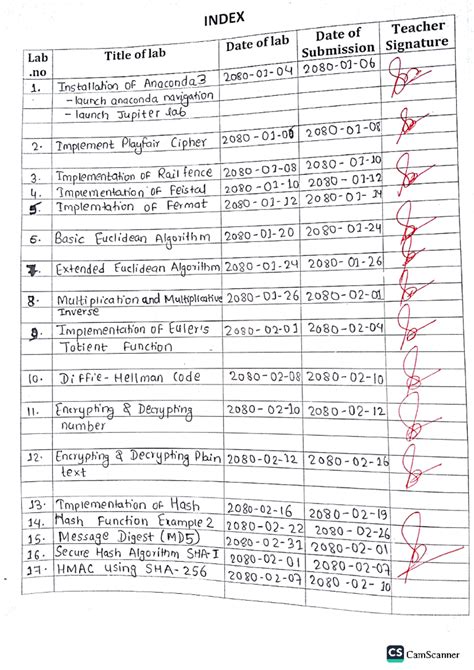 INDEX
Lab .no Title of lab Date of lab Date of Submission Teacher Signature
1. Installation of Anaconda3 2080-01-04 2080-01-06
- launch anaconda navigation
- launch Jupiter lab
2. Implement Playfair Cipher 2080-01-08 2080-01-08
3. Implementation of Rail fence 2080-01-08 2080-01-10
4. Implementation of Feistal 2080-01-10 2080-01-12
5. Implemtation of Fermat 2080-01-12 2080-01-14
6. Basic Euclidean Algorithm 2080-01-20 2080-01-24
7. Extended Euclidean Algorithm 2080-01-24 2080-01-26
8. Multiplication and Multiplicative 2080-01-26 2080-02-01
Inverse
9. Implementation of Euler's 2080-02-01 2080-02-04
Totient Function
10. Diffie-Hellman Code 2080-02-08 2080-02-10
11. Encrypting & Decrypting 2080-02-10 2080-02-12
number
12. Encrypting & Decrypting Plain 2080-02-12 2080-02-16
text
13. Implementation of Hash 2080-02-16 2080-02-19
14. Hash Function Example 2 2080-02-22 2080-02-26
15. Message Digest (MD5) 2080-02-31 2080-02-01
16. Secure Hash Algorithm SHA-I 2080-02-01 2080-02-07
17. HMAC using SHA-256 2080-02-07 2080-02-10
CS CamScanner